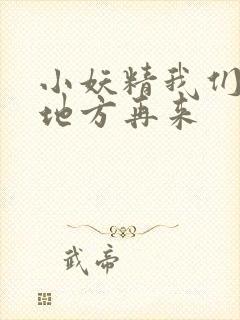 小妖精我们
地方再来
武帝